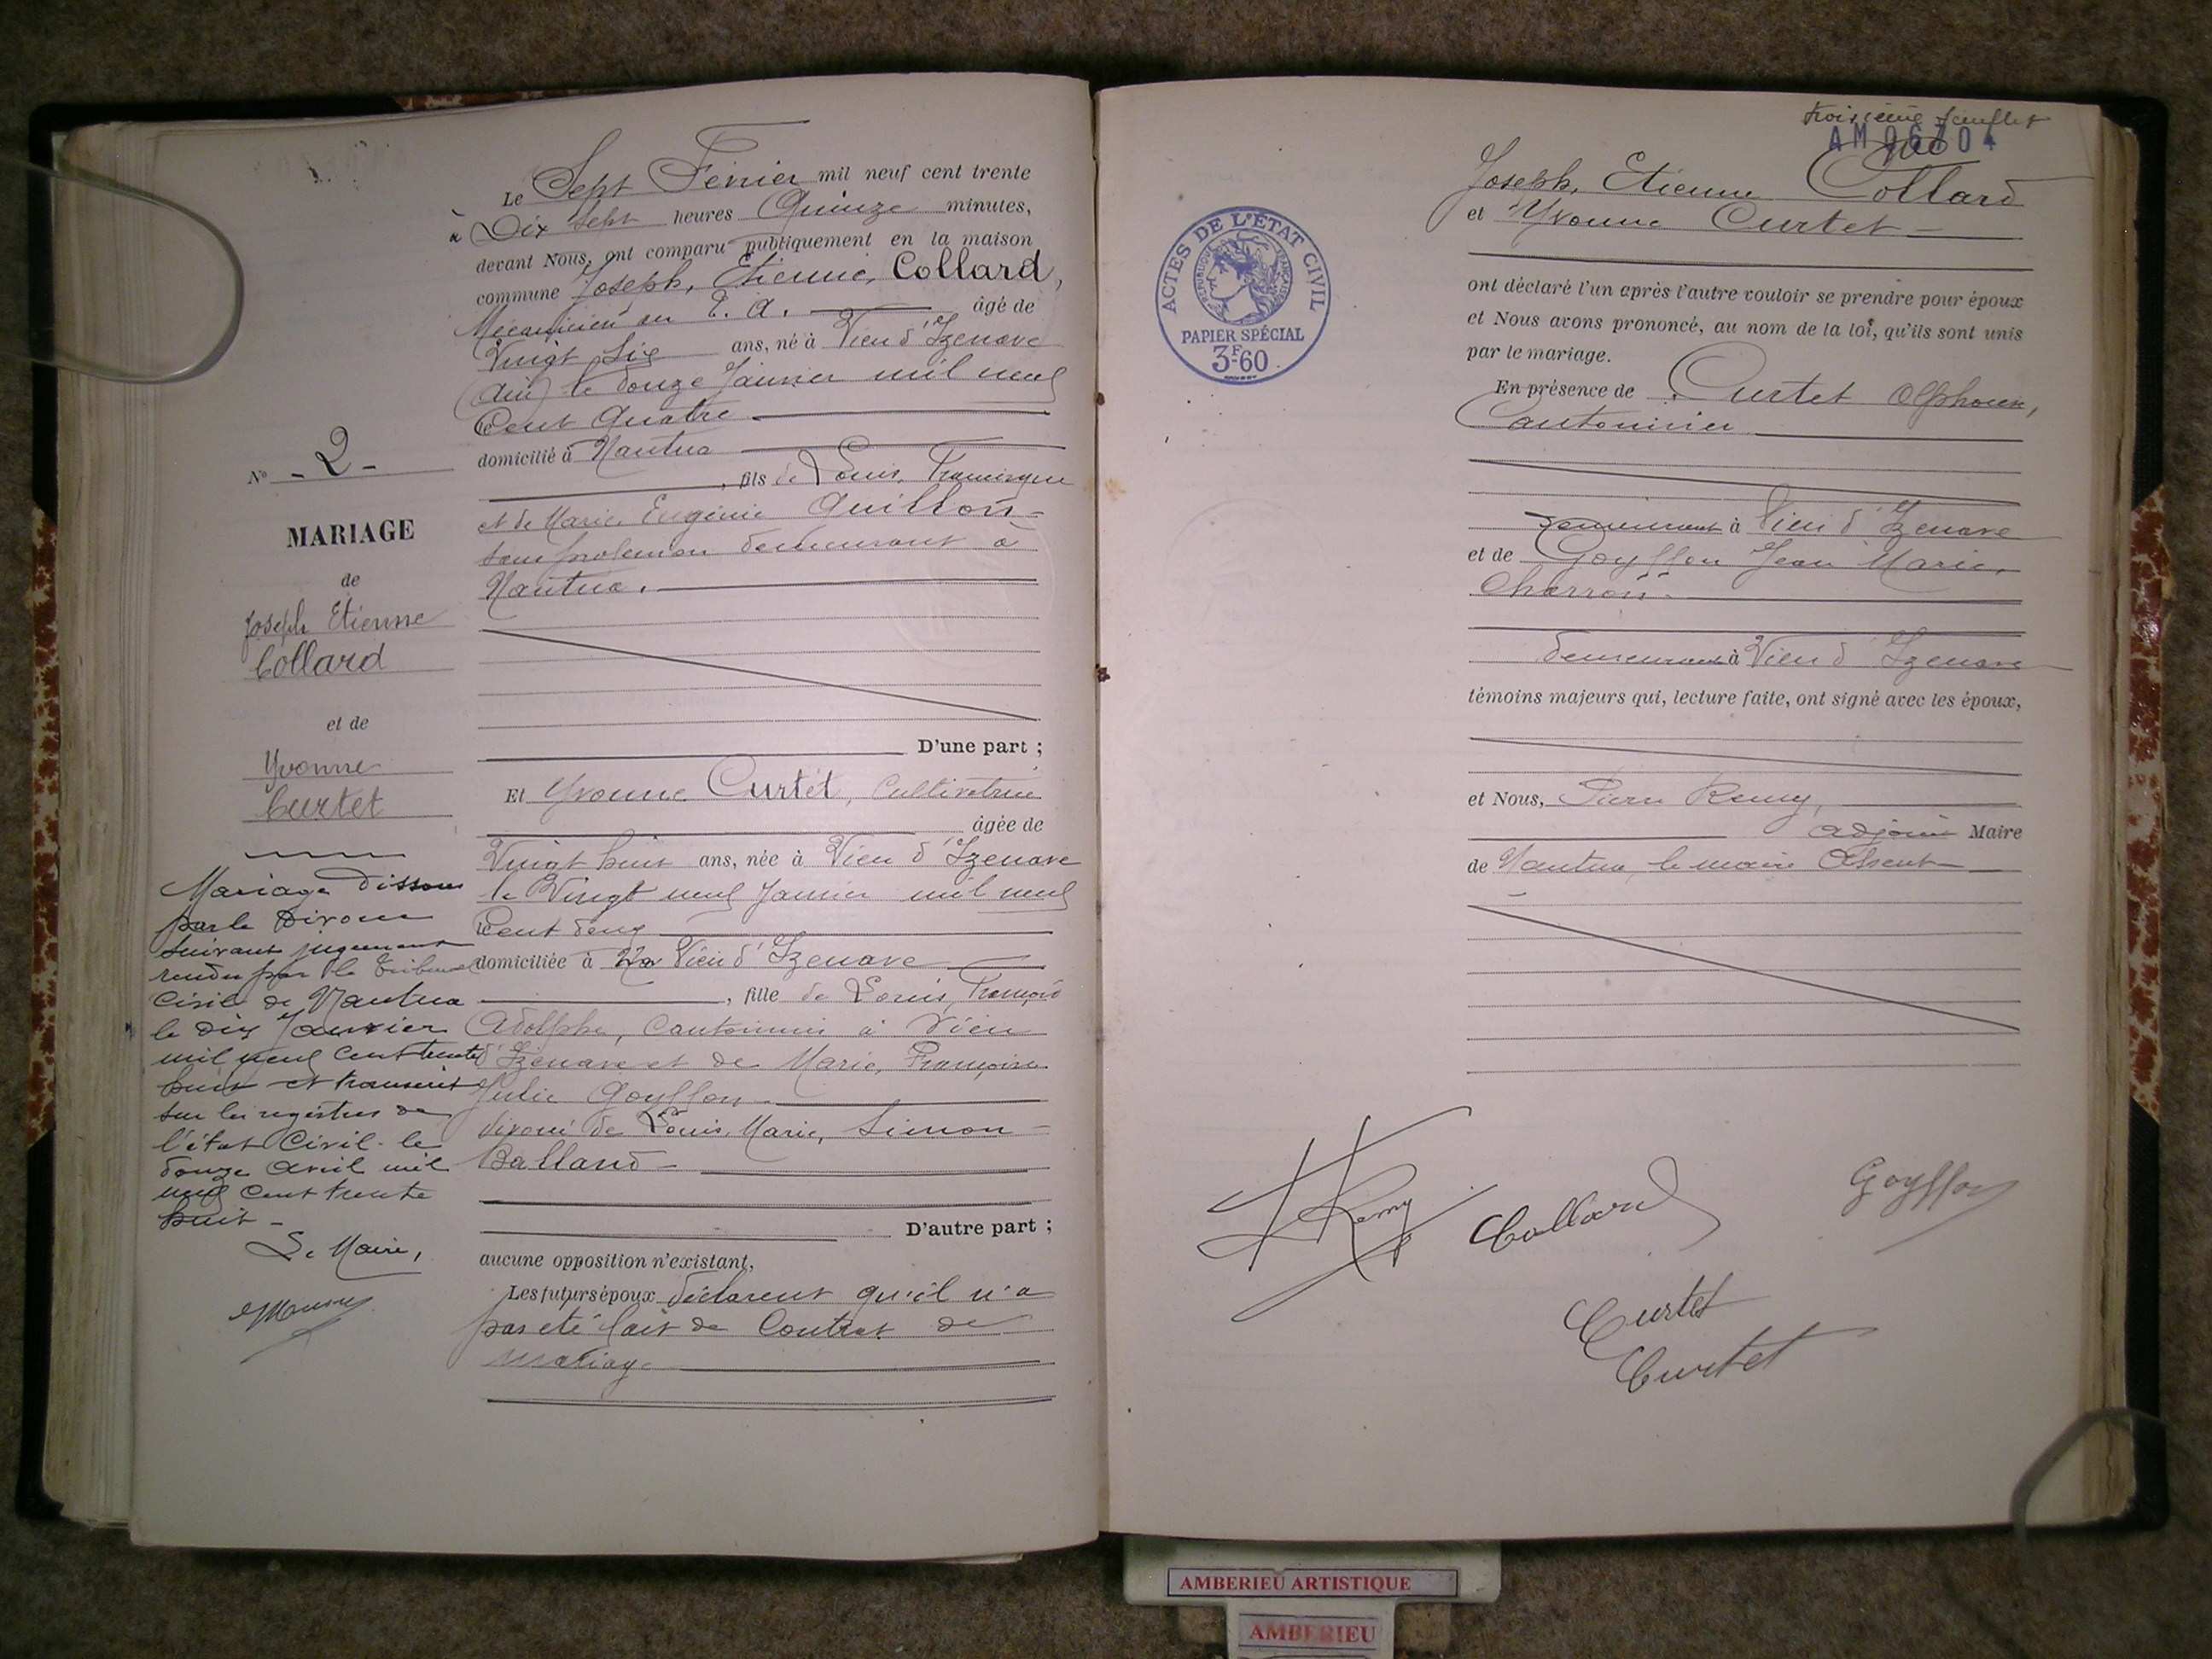 Le Sept Février mil neuf cent trente
à Dix sept heures Quinze minutes,
devant Nous, ont comparu publiquement en la maison
commune Joseph, Etienne, Collard,
Mécanicien au E. A. âgé de
Vingt Six ans, né à Vieu d'Izenave
(Ain) le douze Janvier mil neuf
Cent Quatre
domicilié à Nantua
, fils de Louis,
et de Marie Eugénie Guillon
sans profession demeurant à
Nantua.
D'une part ;
Et Yvonne Curtet, Cultivatrice
âgée de
Vingt huit ans, née à Vieu d'Izenave
le Vingt neuf Janvier mil neuf
Cent deux
domiciliée à Vieu d'Izenave
, fille de Louis, François
Adolphe, Cantonnier à Vieu
d'Izenave et de Marie, Françoise
Julie Goyffon
divorcé de Louis, Marie, Simon
Balland
D'autre part ;
aucune opposition n'existant,
Les futurs époux déclarent qu'il n'a
pas été fait de Contrat de
mariage
No - 2 -
MARIAGE
de
Joseph Etienne
Collard
et de
Yvonne
Curtet
Mariage dissous
par le Divorce
suivant jugement
rendu par le Tribunal
Civil de Nantua
le dix Janvier
mil neuf cent trente
huit et transcrit
sur les registres de
l'état Civil le
douze avril mil
neuf cent trente
huit
Le Maire,
troisième feuillet
AM 06704
Joseph, Etienne Collard
et Yvonne Curtet
ont déclaré l'un après l'autre vouloir se prendre pour époux
et Nous avons prononcé, au nom de la loi, qu'ils sont unis
par le mariage.
En présence de Curtet Alphonse,
Cantonnier
demeurant à Vieu d'Izenave
et de Goyffon Jean Marie,
Charron
demeurant à Vieu d'Izenave
témoins majeurs qui, lecture faite, ont signé avec les époux,
et Nous, Pierre Remy,
adjoint Maire
de Nantua, le maire Absent
Remy
Collard
Goyffon
Curtet
Curtet
ACTES DE L'ÉTAT CIVIL
RÉPUBLIQUE FRANÇAISE
PAPIER SPÉCIAL
3F.60
AMBERIEU ARTISTIQUE
AMBERIEU